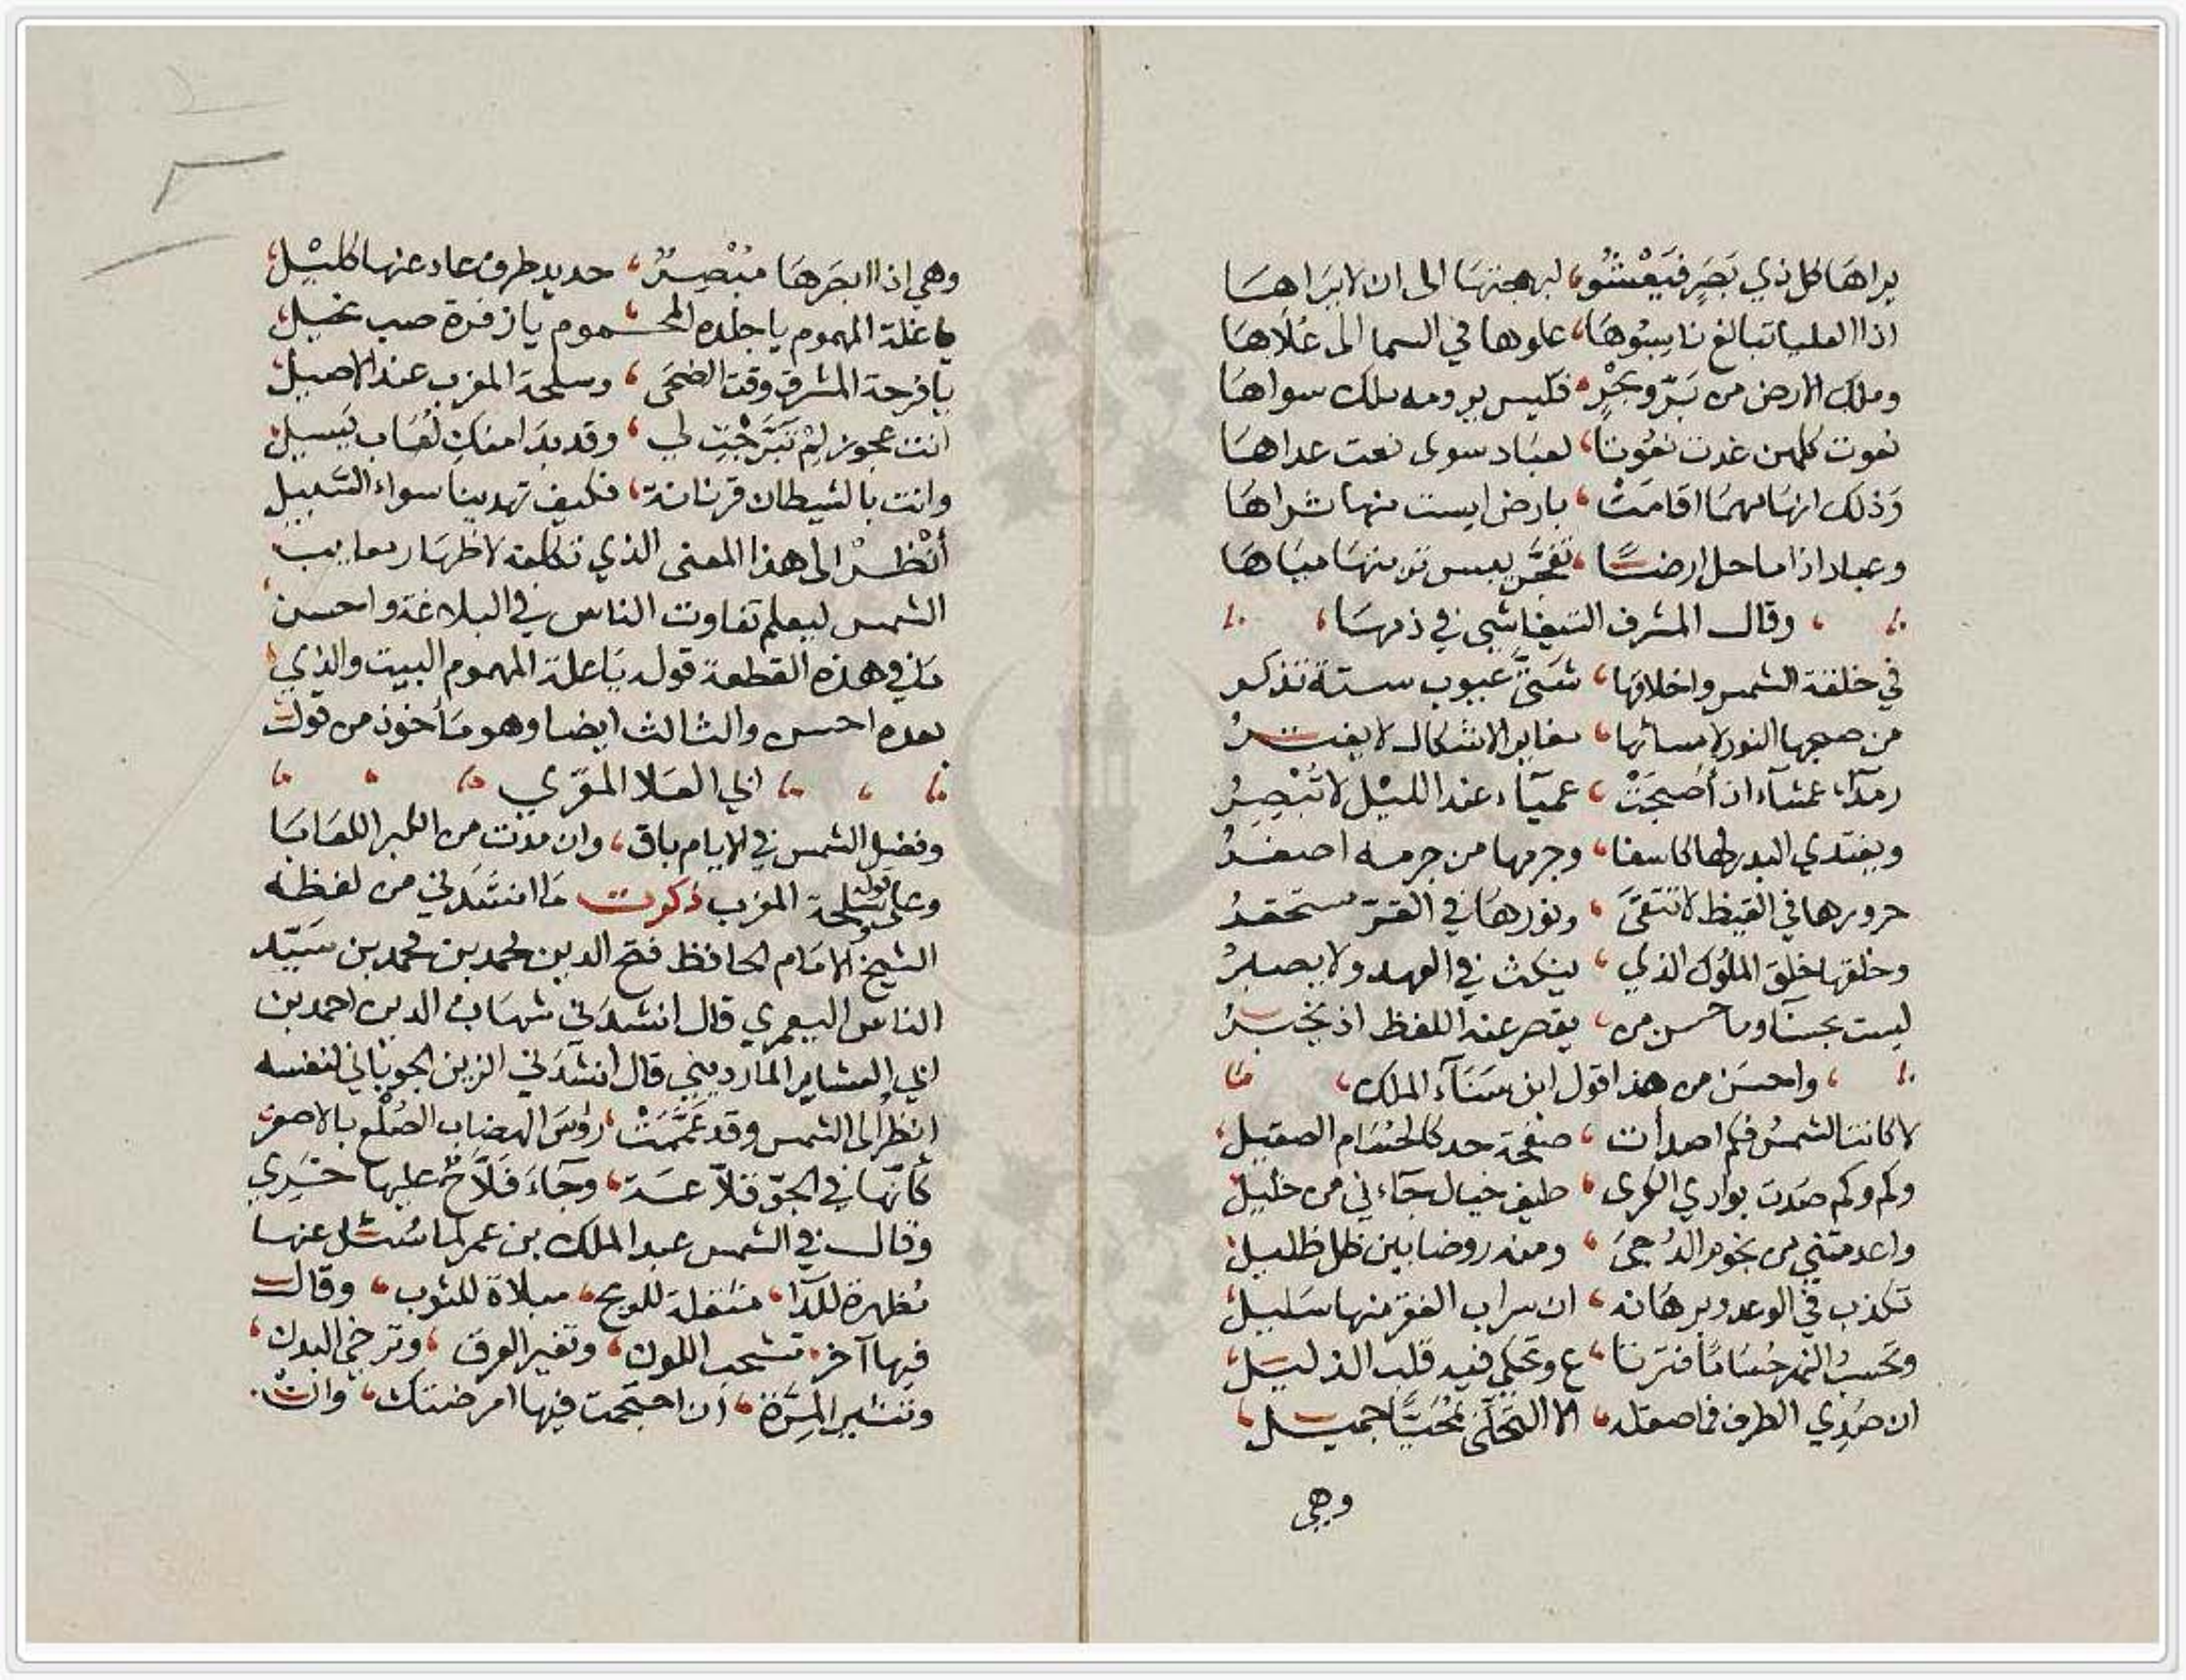 يراها كل ذي بصر فيعشو، لبهجتها الى ان لا يراها
اذا العليا تبالغ ناسبوها، علوها في السما الى علاها
وملك الارض من بر وبحر، فليس يرومه ملك سواها
نعوت كلهن غدت نعوتا، لعباد سوى نعت عداها
وذلك انها مهما اقامت، بارض ايست منها ثراها
وعباد اذا ما حل ارضا، تفجر منها مياها
وقال المشرف التيفاشي في ذمها،
في خلقة الشمس واخلاقها، شتى عيوب ستة تذكر
من صبحها النور لامسائها، مغاير الاشكال لا يفتر
رمدآء عمشآء اذ أصبحت، عميآء عند الليل لا تبصر
ويغتدي البدر لها كاسفا، وجرمها من جرمه اصغر
حرورها في القيظ لا تتقى، ونورها في القر مستحقر
وخلقها خلق الملوك الذي، ينكث في العهد ولا يصبر
ليست بحسنآ وما حسن من، يقصر عنه اللفظ اذ يخبر
، واحسن من هذا قول ابن سنآء الملك،
لا كانت الشمس فكم اصدأت، صفحة خد كالحسام الصقيل،
وكم وكم صدت بوادي الكرى، طيف خيال جآءني من خليل
واعدمتني من نجوم الدجى، ومنه روضا بين ظل ظليل
تكذب في الوعد وبرهانه، ان سراب القفر منها سليل
وتحسب النهر حساما فترتا، ع وتحكي فيه قلب الذليل
ان صدي الطرف فما صقله، الا التحلي بمحيا جميل،
وهي
وهي اذا ابصرها مبصر، حديد طرف عاد عنها كليل،
يا علة المهموم يا جلدة المحموم يا زفرة صب نحيل
يا فرحة المشرق وقت الضحى، وسلحة المغرب عند الاصيل
انت عجوز لم تبرجت لي، وقد بدا منك لعاب يسيل
وانت بالشيطان قرنانة، فكيف تهدينا سواء السبيل
أنظر الى هذا المعنى الذي تكلفه لاظهار معايب
الشمس ليعلم تفاوت الناس في البلاغة واحسن
ما في هذه القطعة قوله يا علة المهموم البيت والذي
بعده احسن والثالث ايضا وهو مأخوذ من قول
ابي العلا المعري
وفضل الشمس في الايام باق، وان مدت من الكبر اللعابا
وعلى قوله وسلحة المغرب ذكرت ما انشدني من لفظه
الشيخ الامام الحافظ فتح الدين محمد بن محمد بن سيد
الناس اليعمري قال انشدني شهاب الدين احمد بن
ابي العشاير المارديني قال انشدني الزين الجوباني لنفسه
انظر الى الشمس وقد عممت، رؤس الهضاب الصلع بالاصفر
كأنها في الجو فلاعسة، وجآء فلاح عليها خري
وقال في الشمس عبد الملك بن عمر لما سئل عنها
مظهرة للدآ، مثقلة للريح، مبلاة للثوب، وقال
فيها آخر، تشحب اللون، وتغير العرق، وترخي البدن،
وتثير المرة، ان احتجمت فيها امرضتك، وان